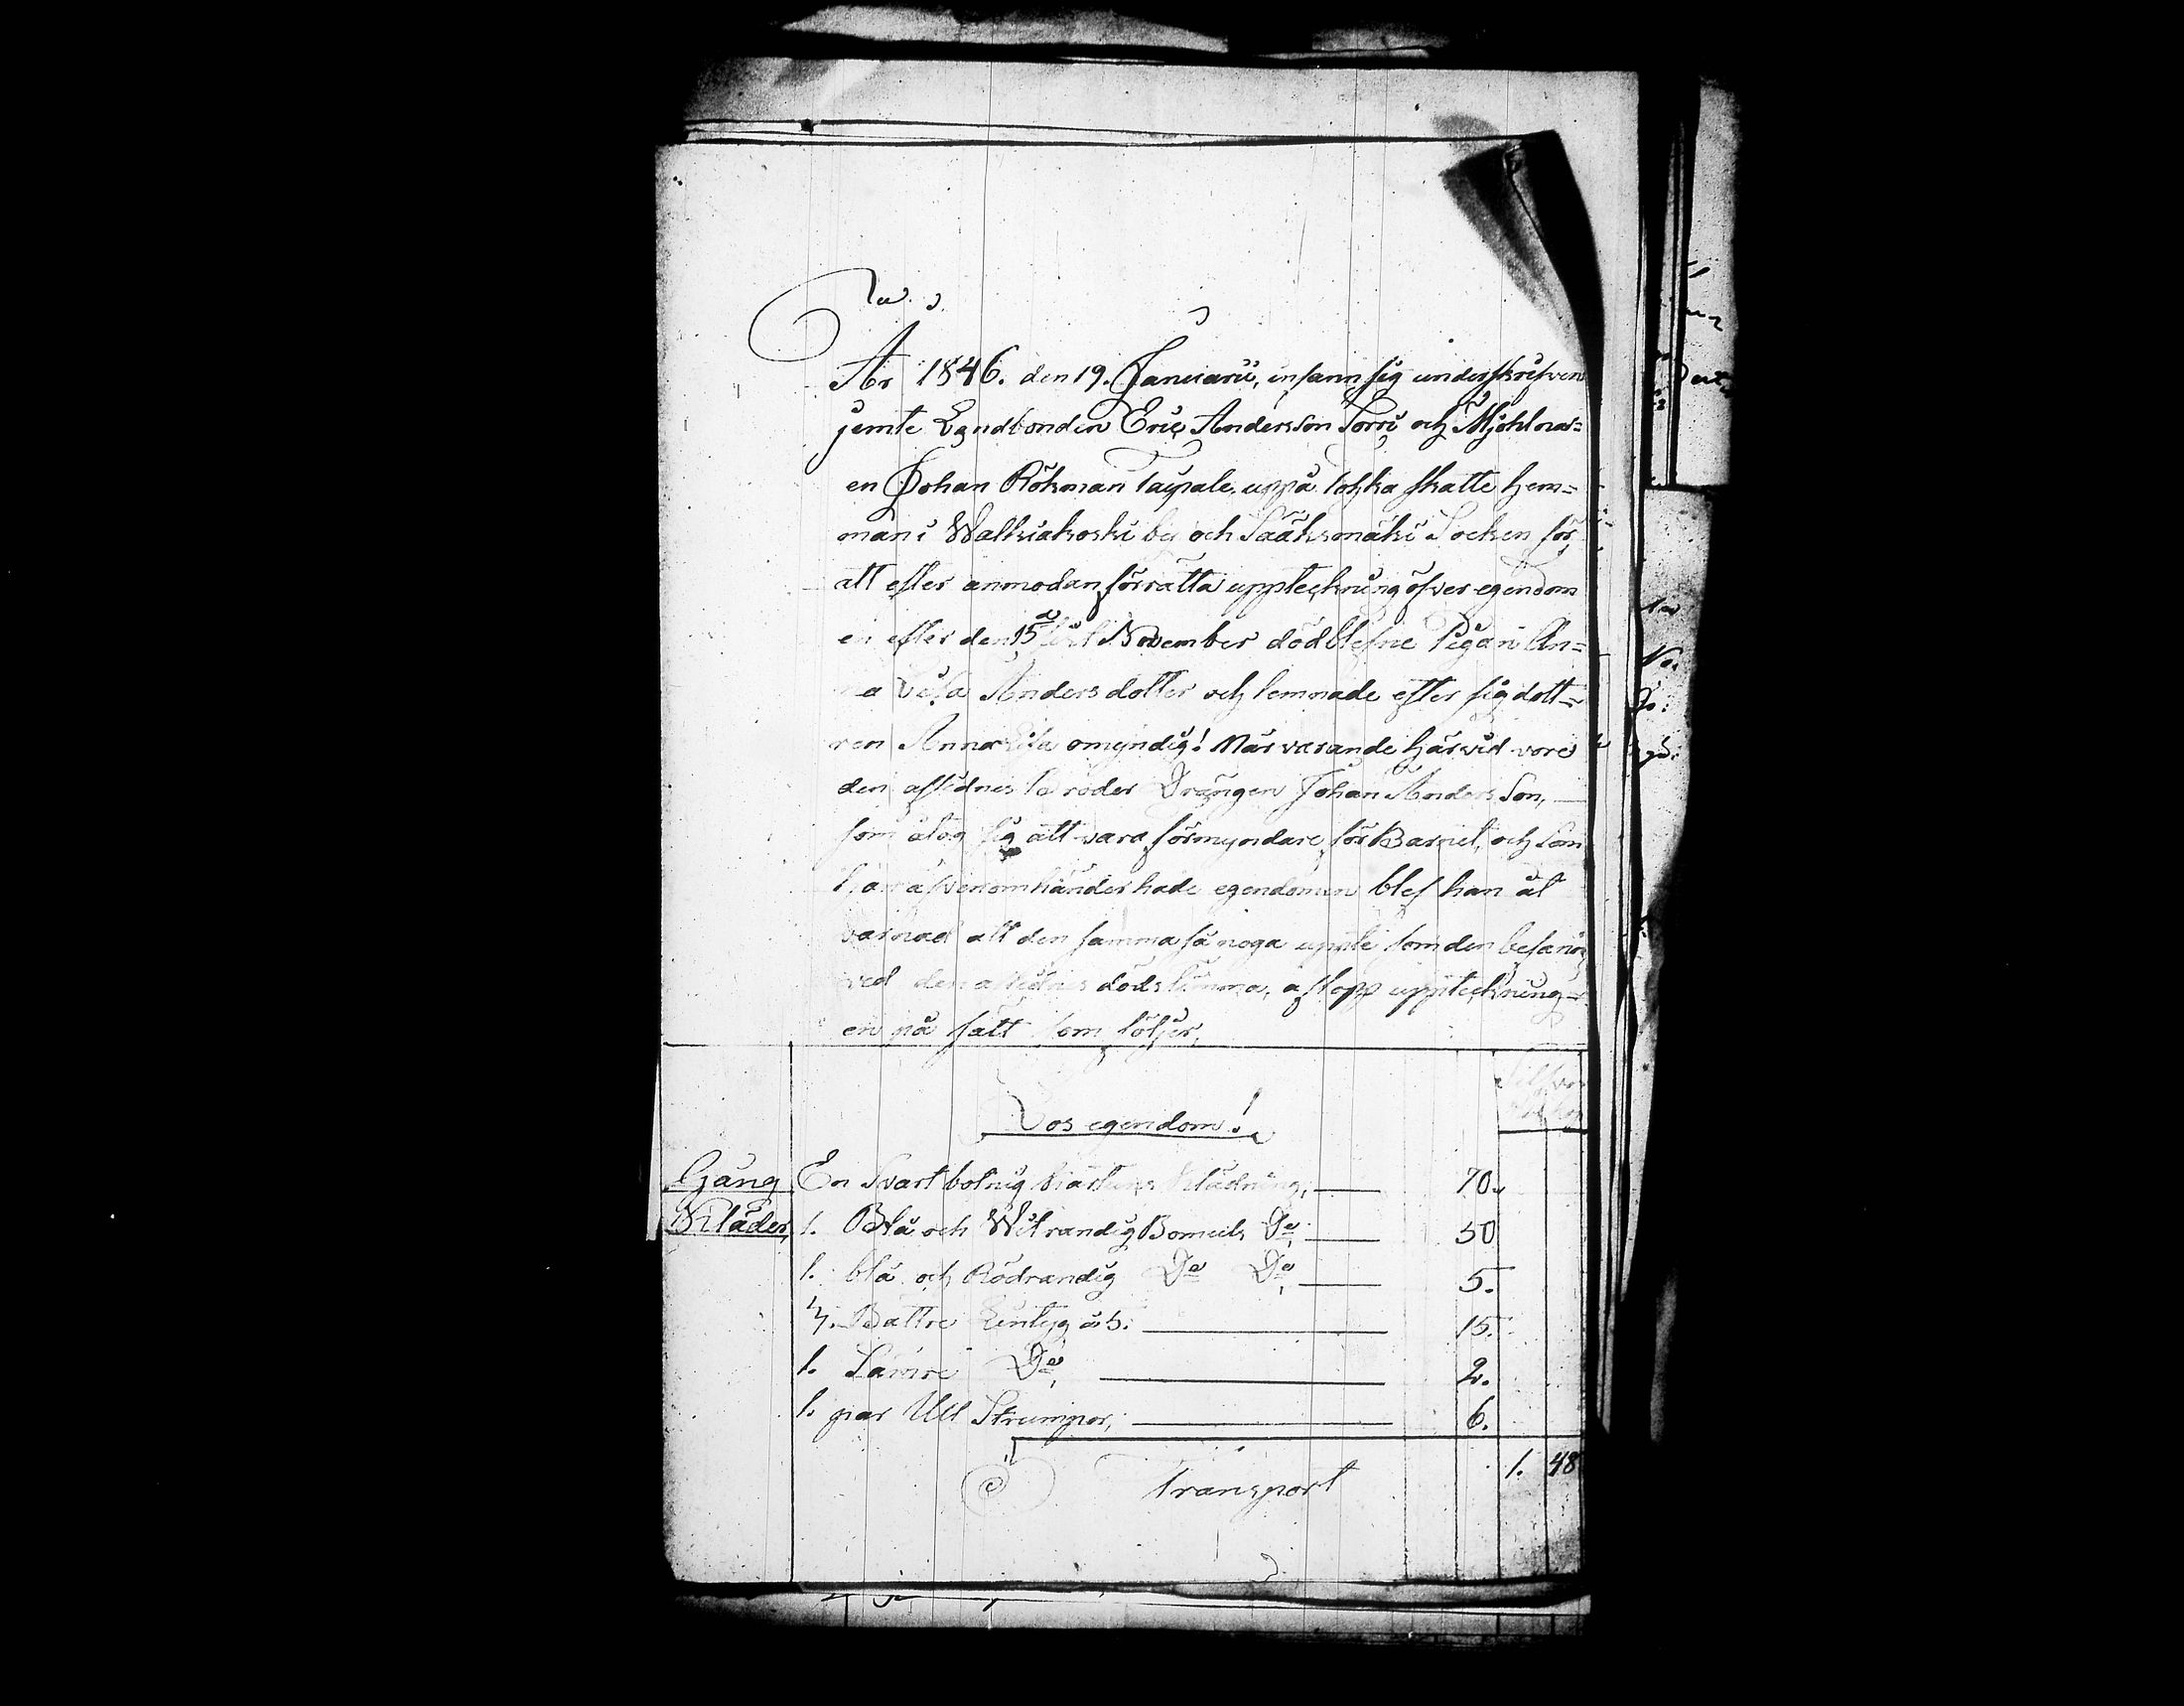 År 1846. den 19. Januarii, infann sig underskrifven
jemte Landbonden Eric Andersson Torri och Mjöhlnar=
en Johan Rökman Taipale, uppå Lohka skatte hem=
man i Walkiakoski by och Sääksmäki Socken för
att efter anmodan förrätta uppteckning öfver egendom
en efter den 15 November död blefne Pigan An=
na Lisa Anders dotter och lemnade efter sig dott=
ren Anna Lisa omyndig! Närvarande härvid vore
den aflidnes Broder Drängen Johan Anders Son,
som åtog sig att vara förmyndare för Barnet, och som
han äfven om händer hade egendomen blef han åt
varnad att den samma så noga uppte som den befanns
ved den aflidnes dödstimma, aflopp uppteckning=
en på sätt som följer,
Silfver
Lös egendom!
Gång En Svart botnig Klädning, 70.
Kläder, 1. Blå och Witrandig Bomuls Do, 50
1. blå och Rödrandig Do Do, 5.
4. Bättre Lintyg à 5. 15.
1. Sämre Do, 2.
1. par Ull Strumpor, 6.
1. 48
Transport